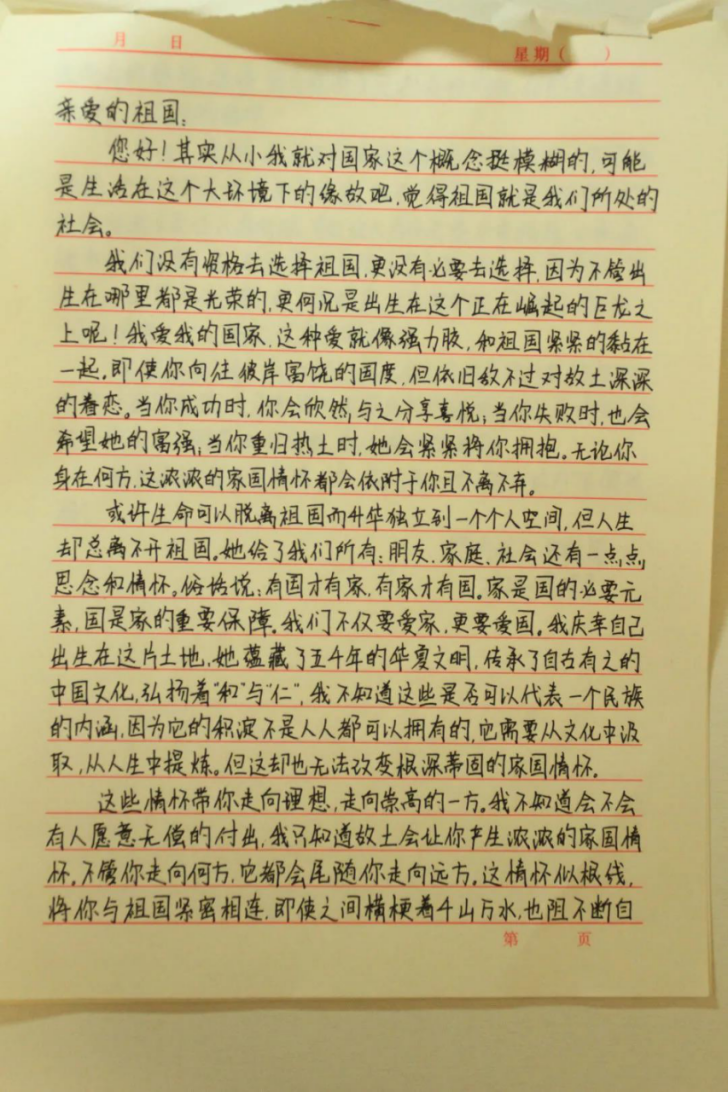 月 日
星期( )
亲爱的祖国:
您好!其实从小我就对国家这个概念挺模糊的,可能
是生活在这个大环境下的缘故吧,觉得祖国就是我们所处的
社会。
我们没有资格去选择祖国,更没有必要去选择,因为不管出
生在哪里都是光荣的,更何况是出生在这个正在崛起的巨龙之
上呢!我爱我的国家,这种爱就像强力胶,和祖国紧紧的黏在
一起。即使你向往彼岸富饶的国度,但依旧敌不过对故土深深
的眷恋。当你成功时,你会欣然与之分享喜悦;当你失败时,也会
希望她的富强;当你重归热土时,她会紧紧将你拥抱。无论你
身在何方,这浓浓的家国情怀都会依附于你且不离不弃。
或许生命可以脱离祖国而升华独立到一个个人空间,但人生
却总离不开祖国。她给了我们所有:朋友、家庭、社会还有一点点
思念和情怀。俗话说:有国才有家,有家才有国。家是国的必要元
素,国是家的重要保障。我们不仅要爱家,更要爱国。我庆幸自己
出生在这片土地,她蕴藏了五千年的华夏文明,传承了自古有之的
中国文化,弘扬着“和”与“仁”,我不知道这些是否可以代表一个民族
的内涵,因为它的积淀不是人人都可以拥有的,它需要从文化中汲
取,从人生中提炼。但这却也无法改变根深蒂固的家国情怀。
这些情怀带你走向理想,走向崇高的一方。我不知道会不会
有人愿意无偿的付出,我只知道故土会让你产生浓浓的家国情
怀。不管你走向何方,它都会尾随你走向远方。这情怀似根线,
将你与祖国紧密相连,即使之间横梗着千山万水,也阻不断自
第 页